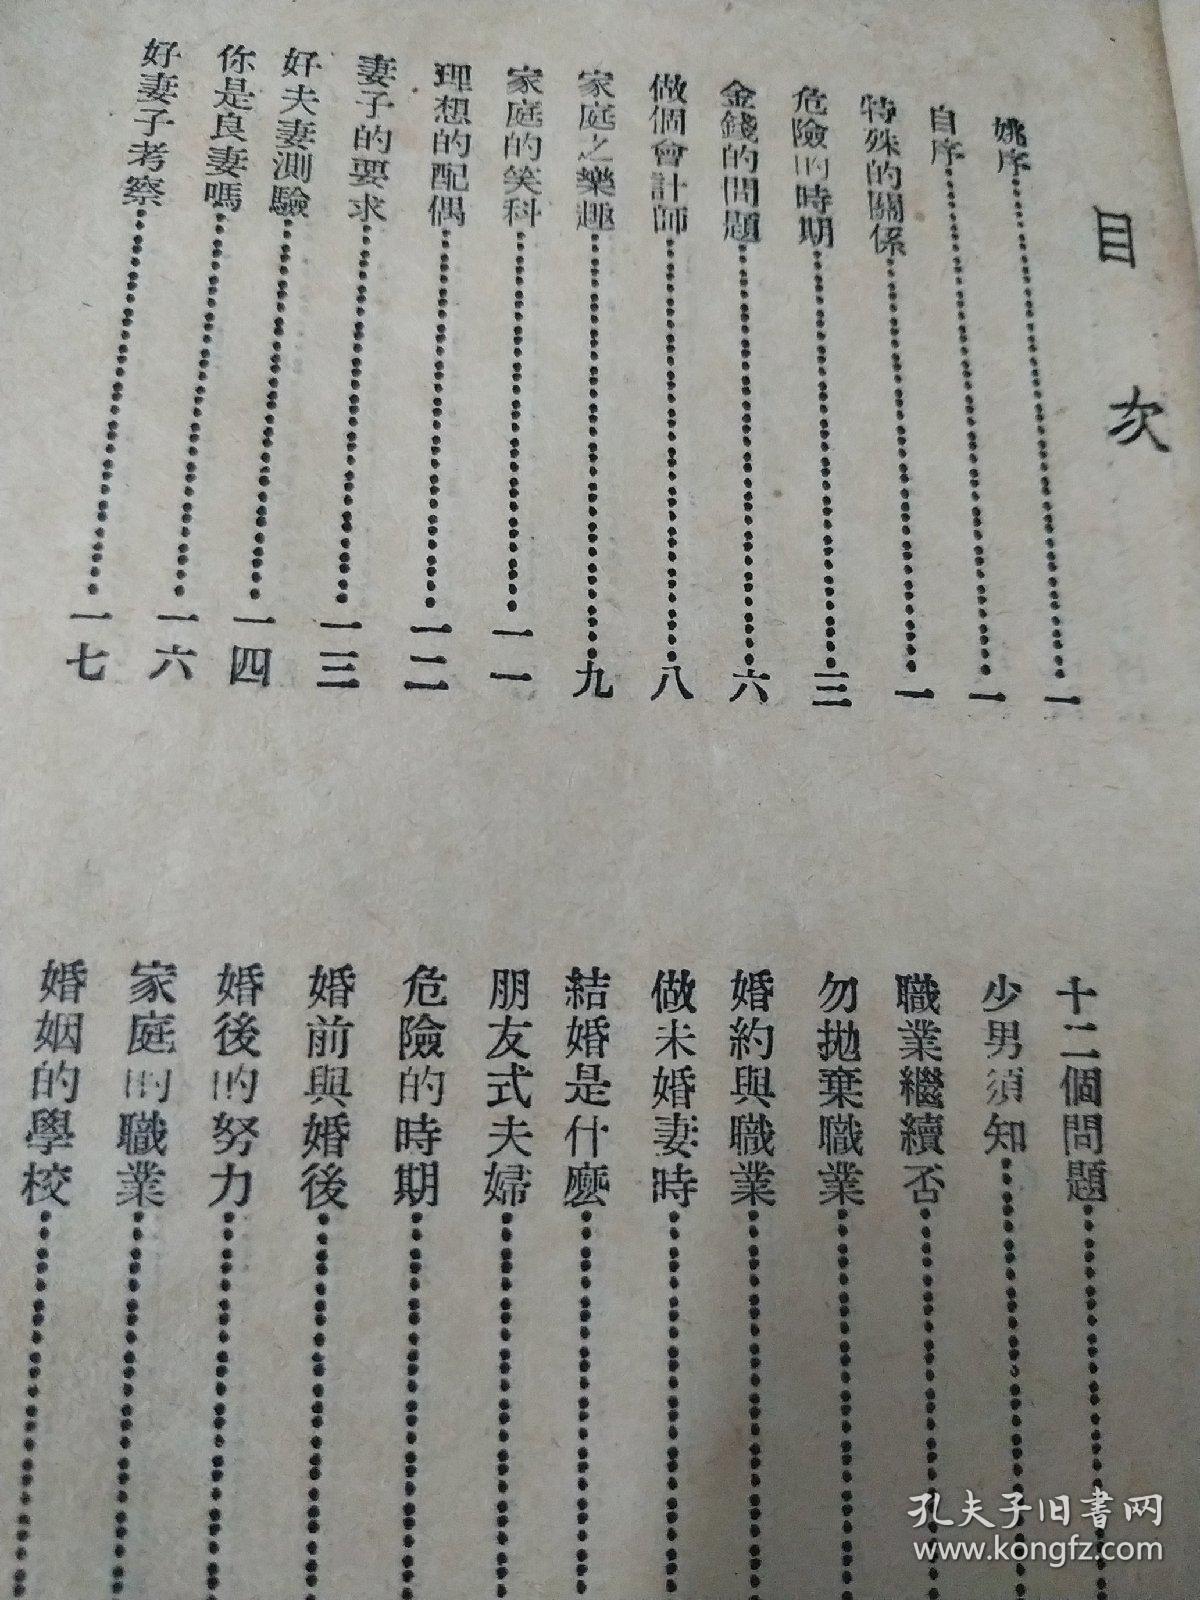 目次
姚序…………一
自序…………一
特殊的關係…………一
危險的時期…………三
金錢的問題…………六
做個會計師…………八
家庭之樂趣…………九
家庭的笑科…………一一
理想的配偶…………一二
妻子的要求…………一三
好夫妻測驗…………一四
你是良妻嗎…………一六
好妻子考察…………一七
十二個問題…………
少男須知…………
職業繼續否…………
勿拋棄職業…………
婚約與職業…………
做未婚妻時…………
結婚是什麼…………
朋友式夫婦…………
危險的時期…………
婚前與婚後…………
婚後的努力…………
家庭的職業…………
婚姻的學校…………
孔夫子旧书网
www.kongfz.com